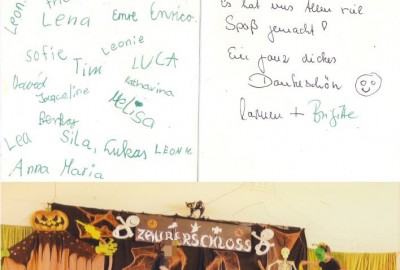 Leonie
Lena
Emre
Enrico
Sofie
Leonie
Tim
LUCA
David
Jacqueline
Katharina
Melisa
Berkay
Lea
Sila,
Lukas
LEON H.
Anna Maria
Es hat uns Allen viel
Spaß gemacht!
Ein ganz dickes
Dankeschön
Carmen + Brigitte
ZAUBERSCHLOSS